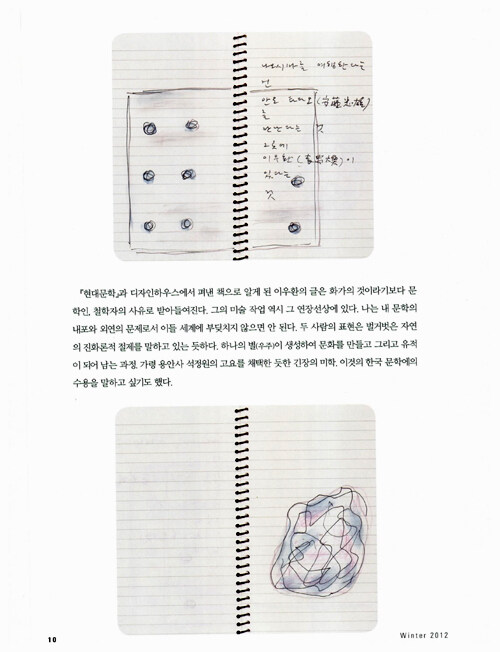 나오시마를 여행한다는
건
안도 다다오(安藤忠雄)
를
만난다는 것
그곳에
이우환(李禹煥)이
있다는
것
『현대문학』과 디자인하우스에서 펴낸 책으로 알게 된 이우환의 글은 화가의 것이라기보다 문
학인, 철학자의 사유로 받아들여진다. 그의 미술 작업 역시 그 연장선상에 있다. 나는 내 문학의
내포와 외연의 문제로서 이들 세계에 부딪치지 않으면 안 된다. 두 사람의 표현은 벌거벗은 자연
의 진화론적 절제를 말하고 있는 듯하다. 하나의 별(우주)이 생성하여 문화를 만들고 그리고 유적
이 되어 남는 과정. 가령 용안사 석정원의 고요를 채택한 듯한 긴장의 미학. 이것의 한국 문학에의
수용을 말하고 싶기도 했다.
10
Winter 2012